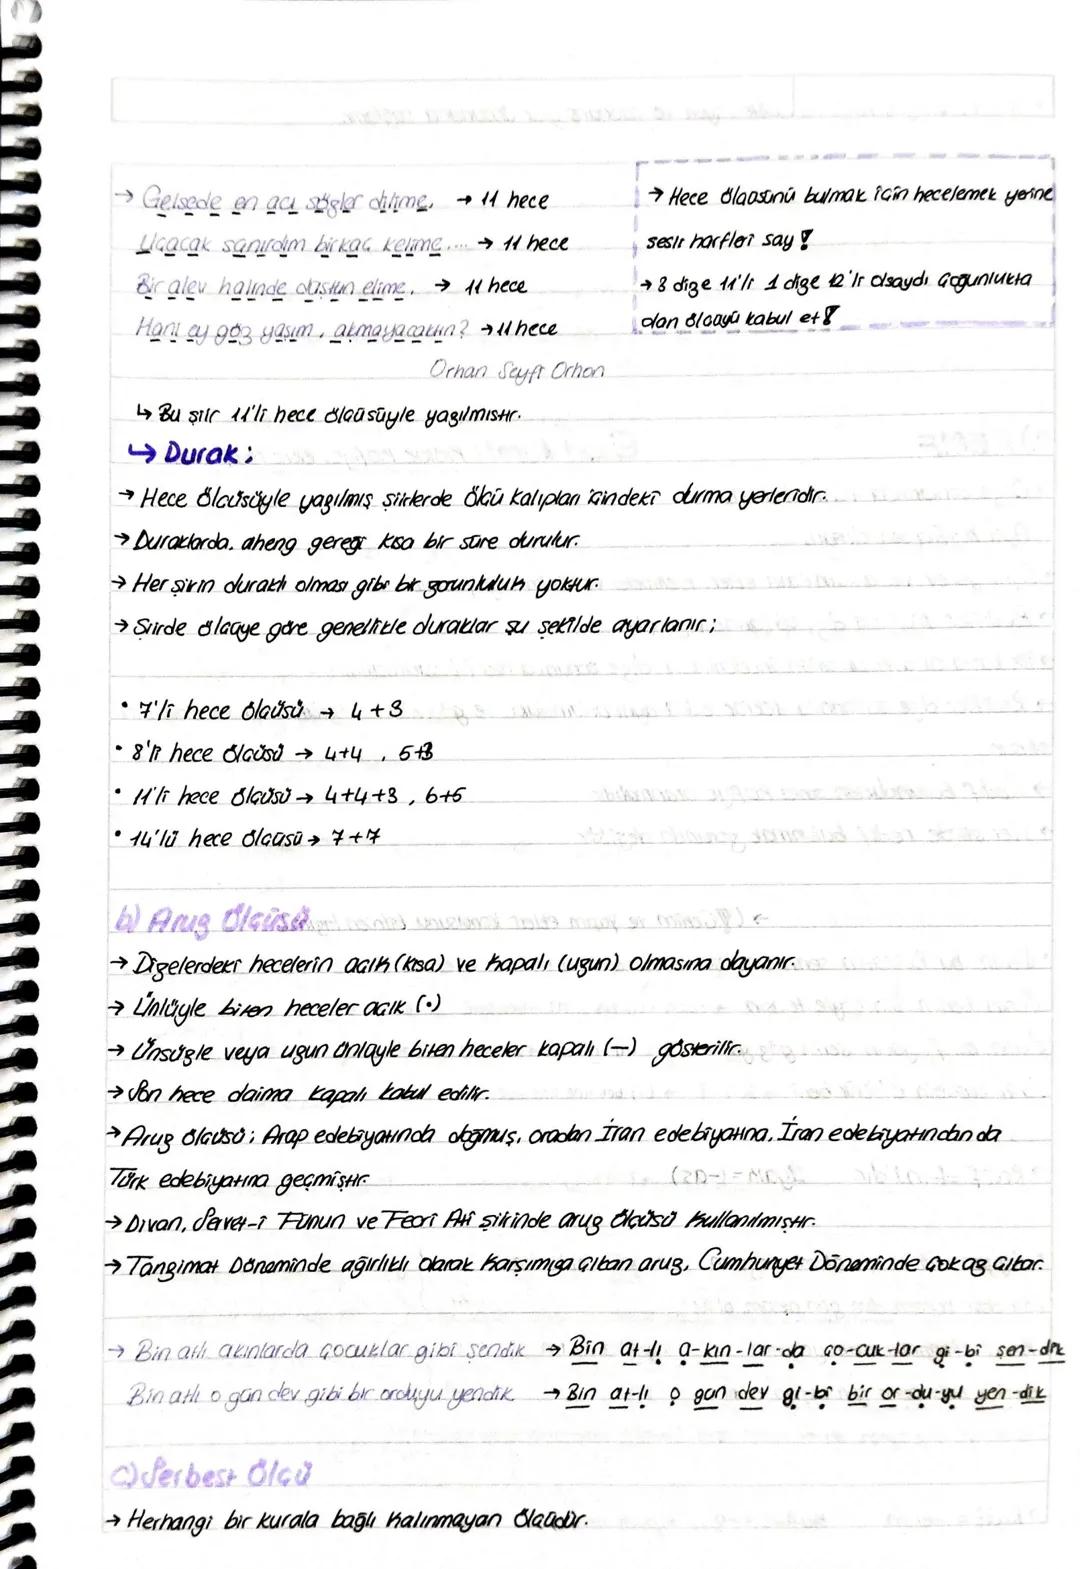 → Gelsede en acı sözler dilime, → 11 hece
Uçacak sanırdım birkaç kelime.... → 11 hece
Bir alev halinde düştün elime, → 11 hece
Hani ey göz yaşım, akmayacaktın? → 11 hece
Orhan Seyfi Orhon
→ Hece ölçüsünü bulmak için hecelemek yerine
sesli harfleri say !
→ 3 dize 11'li 1 dize 12'li olsaydı çoğunlukta
olan ölçüyü kabul et !
↳ Bu şiir 11'li hece ölçüsüyle yazılmıştır.
↳ Durak :
→ Hece ölçüsüyle yazılmış şiirlerde ölçü kalıpları içindeki durma yerleridir.
→ Duraklarda, aheng gereği kısa bir süre durulur.
→ Her şiirin duraklı olması gibi bir zorunluluk yoktur.
→ Şiirde ölçüye göre genellikle duraklar şu şekilde ayarlanır ;
• 7'li hece ölçüsü → 4+3
• 8'li hece ölçüsü → 4+4 , 5+3
• 11'li hece ölçüsü → 4+4+3 , 6+5
• 14'lü hece ölçüsü → 7+7
b) Aruz Ölçüsü
→ Dizelerdeki hecelerin açık (kısa) ve kapalı (uzun) olmasına dayanır.
→ Ünlüyle biten heceler açık (.)
→ Ünsüzle veya uzun ünlüyle biten heceler kapalı (—) gösterilir.
→ Son hece daima kapalı kabul edilir.
→ Aruz ölçüsü ; Arap edebiyatında doğmuş, oradan İran edebiyatına, İran edebiyatından da
Türk edebiyatına geçmiştir.
→ Divan, Servet-i Fünun ve Fecri Ati şiirinde aruz ölçüsü kullanılmıştır.
→ Tanzimat Döneminde ağırlıklı olarak karşımıza çıkan aruz, Cumhuriyet Döneminde çok az çıkar.
→ Bin atlı akınlarda çocuklar gibi şendik → Bin at-lı a-kın-lar-da ço-cuk-lar gi-bi şen-dik
Bin atlı o gün dev gibi bir orduyu yendik → Bin at-lı o gün dev gi-bi bir or-du-yu yen-dik
c) Serbest Ölçü
→ Herhangi bir kurala bağlı kalınmayan ölçüdür.